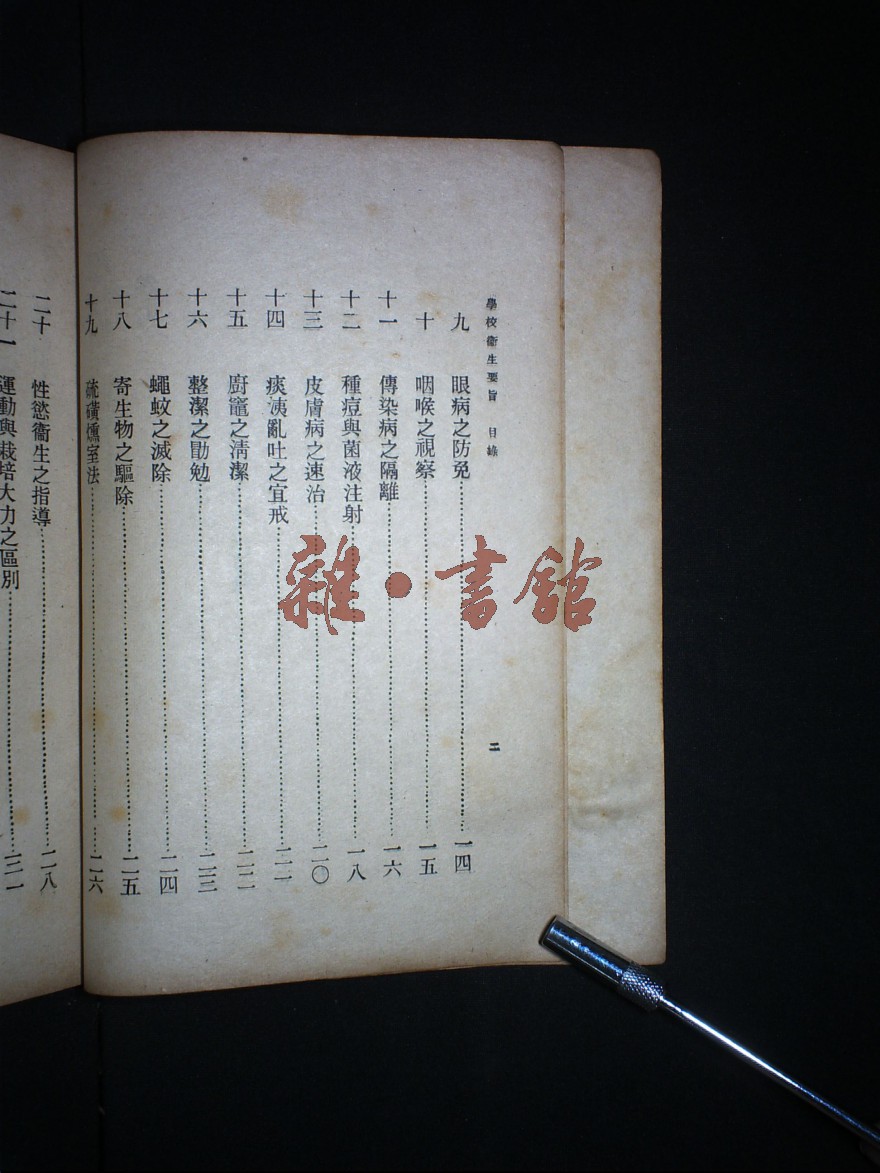 學校衞生要旨 目錄 二
九 眼病之防免 一四
十 咽喉之視察 一五
十一 傳染病之隔離 一六
十二 種痘與菌液注射 一八
十三 皮膚病之速治 二〇
十四 痰洟亂吐之宜戒 二一
十五 廚竈之清潔 二二
十六 整潔之勖勉 二三
十七 蠅蚊之滅除 二四
十八 寄生物之驅除 二五
十九 硫磺燻室法 二六
二十 性慾衞生之指導 二八
二十一 運動與栽培大力之區別 三一
雜·書館